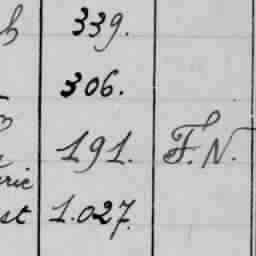 h 339.
306.
191. F. N.
eric
st 1.027.